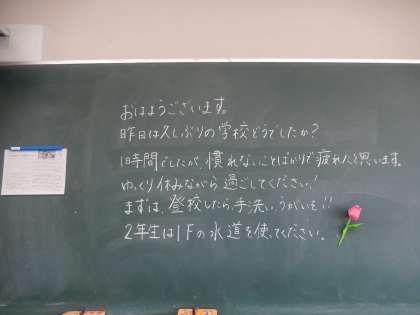 おはようございます。
昨日は久しぶりの学校どうでしたか?
1時間でしたが、慣れないことばかりで疲れたと思います。
ゆっくり休みながら過ごしてください!
まずは、登校したら、手洗い、うがいを!!
2年生は1Fの水道を使ってください。